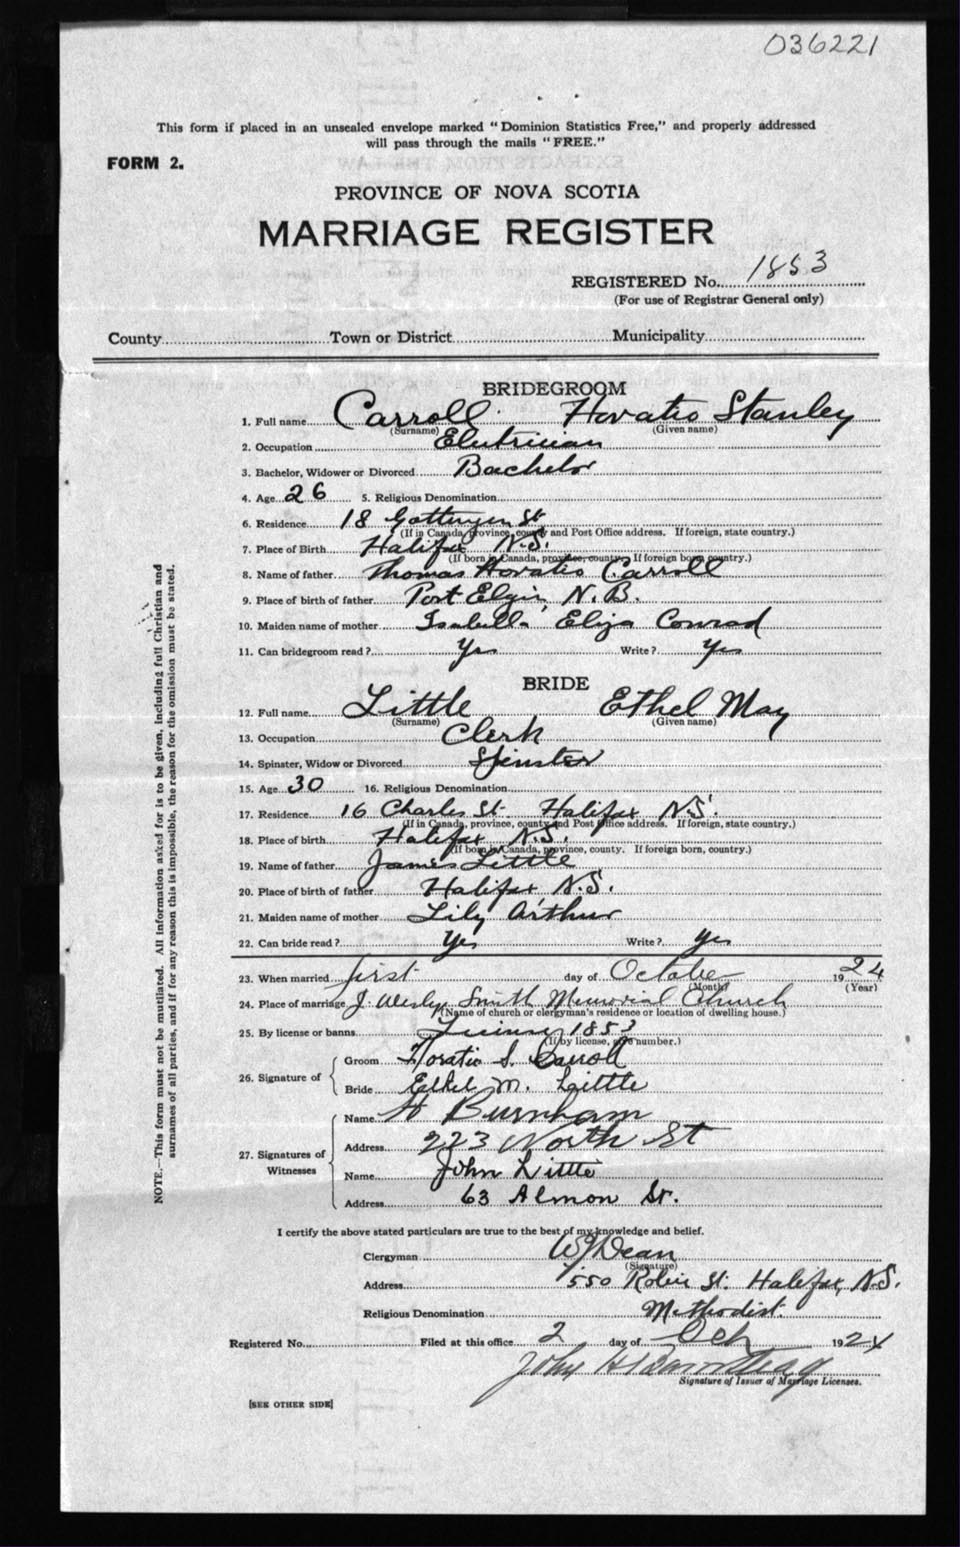 036221
This form if placed in an unsealed envelope marked "Dominion Statistics Free," and properly addressed
will pass through the mails "FREE."
FORM 2.
PROVINCE OF NOVA SCOTIA
MARRIAGE REGISTER
REGISTERED No. 1853
(For use of Registrar General only)
County Town or District Municipality
BRIDEGROOM
1. Full name Carroll Horatio Stanley
(Surname) (Given name)
2. Occupation Electrician
3. Bachelor, Widower or Divorced Bachelor
4. Age 26 5. Religious Denomination
6. Residence 18 Gottingen St
(If in Canada, province, county and Post Office address. If foreign, state country.)
7. Place of Birth Halifax N.S.
(If born in Canada, province, county. If foreign born, country.)
8. Name of father Thomas Horatio Carroll
9. Place of birth of father Port Elgin, N.B.
10. Maiden name of mother Isabella Eliza Conrad
11. Can bridegroom read? Yes Write? Yes
BRIDE
12. Full name Little Ethel May
(Surname) (Given name)
13. Occupation Clerk
14. Spinster, Widow or Divorced Spinster
15. Age 30 16. Religious Denomination
17. Residence 16 Charles St. Halifax N.S.
(If in Canada, province, county and Post Office address. If foreign, state country.)
18. Place of birth Halifax N.S.
(If born in Canada, province, county. If foreign born, country.)
19. Name of father James Little
20. Place of birth of father Halifax N.S.
21. Maiden name of mother Lily Arthur
22. Can bride read? Yes Write? Yes
23. When married first day of October 1924
(Month) (Year)
24. Place of marriage J. Wesley Smith Memorial Church
(Name of church or clergyman's residence or location of dwelling house.)
25. By license or banns License 1853
(If by license, give number.)
26. Signature of
Groom Horatio S. Carroll
Bride Ethel M. Little
27. Signatures of Witnesses
Name H Burnham
Address 223 North St
Name John Little
Address 63 Almon St.
I certify the above stated particulars are true to the best of my knowledge and belief.
Clergyman W J Dean
(Signature)
Address 550 Robie St. Halifax, N.S.
Religious Denomination Methodist.
Registered No. Filed at this office 2 day of Oct 1924
John H
Signature of Issuer of Marriage Licenses.
[SEE OTHER SIDE]
NOTE.—This form must not be mutilated. All information asked for is to be given, including full Christian and
surnames of all parties, and if for any reason this is impossible, the reason for the omission must be stated.